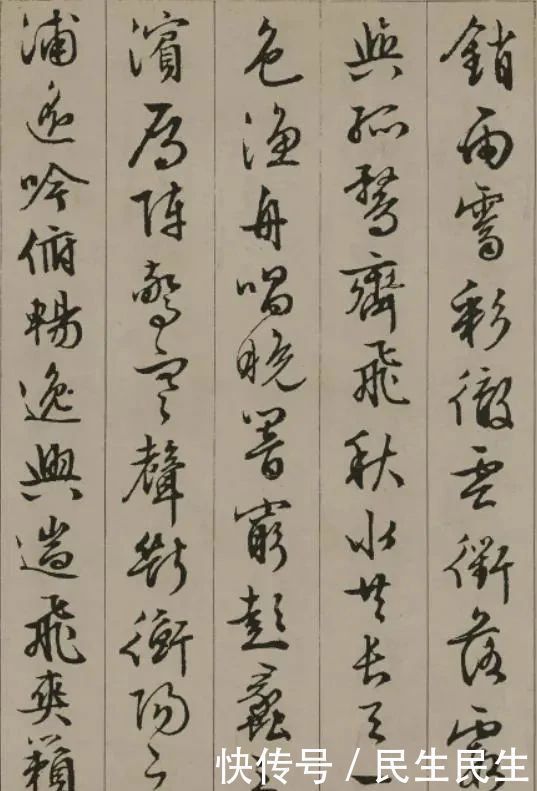 銷雨霽彩徹雲衢落霞
與孤鶩齊飛秋水共長天一
色漁舟唱晚響窮彭蠡之
濱雁陣驚寒聲斷衡陽之
浦遙吟俯暢逸興遄飛爽籟
快传号 / 民生民生